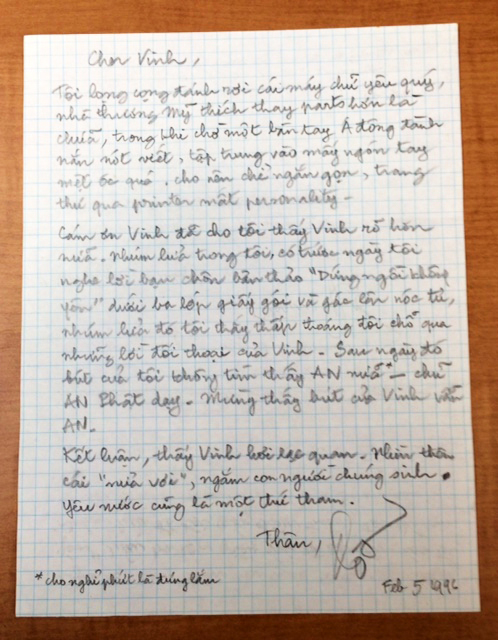 Cher Vinh,
Tôi long cong đánh rơi cái máy chữ yêu quý,
nhà thương Mỹ thích thay parts hơn là
chữa, trong khi chờ một bàn tay Á đông đành
nắn nót viết, tập trung vào mấy ngón tay
mệt óc quá. cho nên chỉ ngắn gọn, trang
thư qua printer mất personality-
Cám ơn Vinh đã cho tôi thấy Vinh rõ hơn
nữa. Nhúm lửa trong tôi, có trước ngày tôi
nghe lời bạn chôn bản thảo "Đứng ngồi không
yên" dưới ba lớp giấy gói và gác lên nóc tủ,
nhúm lửa đó tôi thấy thấp thoáng đôi chỗ qua
những lời đối thoại của Vinh. Sau ngày đó
bút của tôi không tìm thấy AN nữa*- chữ
AN Phật dạy. Mừng thấy bút của Vinh vẫn
AN.
Kết luận, thấy Vinh hơi lạc quan. Nhìn thân
cái "nửa vời", ngắm con người chúng sinh.
Yêu nước cũng là một thứ tham.
Thân,
*cho nghỉ phút là đúng lắm
Feb 5 1996